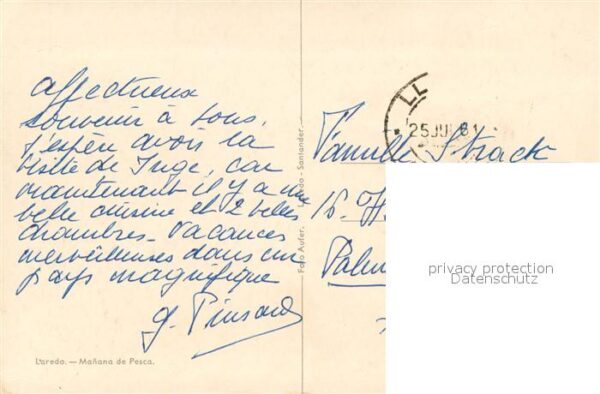 Affectueux
souvenir à tous.
J'espère avoir la
visite de Inge, car
maintenant il y a une
belle cuisine et 2 belles
chambres - Vacances
merveilleuses dans un
pays magnifique
g. Pinsard
Laredo. — Mañana de Pesca.
Foto Aufer. Laredo - Santander.
LL
25 JUL 61
Famille Strack
16. H
Palm
privacy protection
Datenschutz